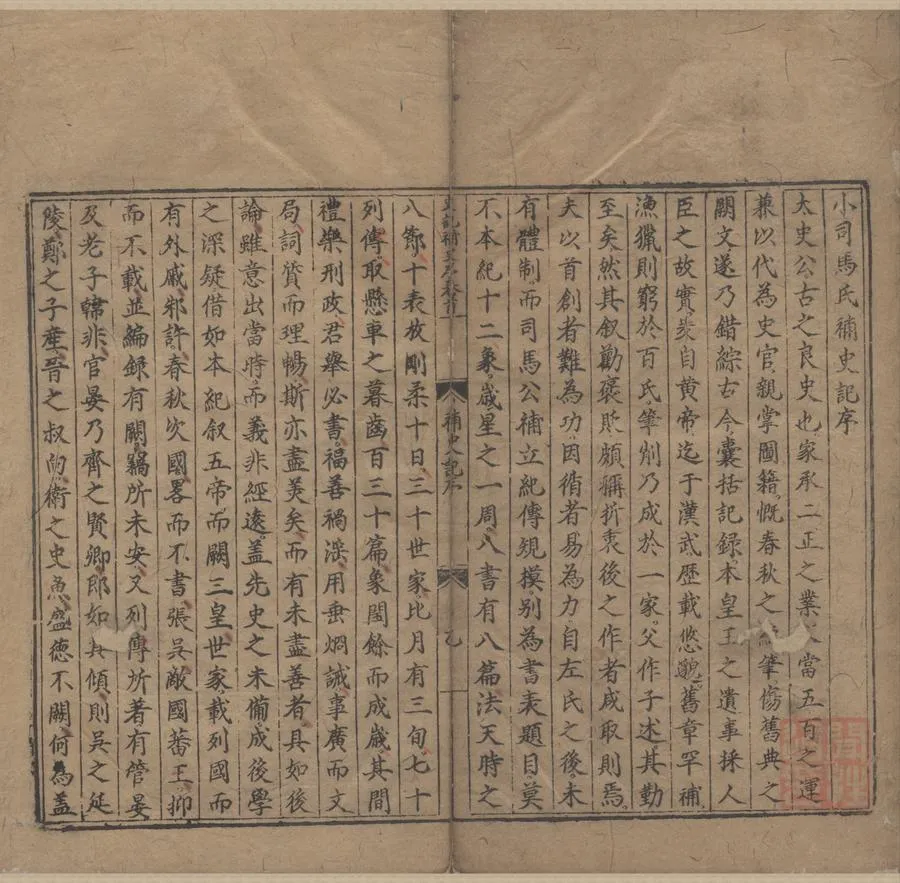 小司馬氏補史記序
太史公古之良史也家承二正之業人當五百之運
兼以代為史官親掌圖籍慨春秋之絕筆傷舊典之
闕文遂乃錯綜古今囊括記録本皇王之遺事採人
臣之故實爰自黄帝迄于漢武歷載悠邈舊章罕補
漁獵則窮於百氏筆削乃成於一家父作子述其勤
至矣然其叙勸褒貶頗稱折衷後之作者咸取則焉
夫以首創者難為功因循者易為力自左氏之後未
有體制而司馬公補立紀傳規摸別為書表題目莫
不本紀十二象歲星之一周八書有八篇法天時之
補史記序
八節十表放剛柔十日三十世家比月有三旬七十
列傳取懸車之暮齒百三十篇象閏餘而成歲其間
禮樂刑政君舉必書福善禍淫用垂烱誡事廣而文
局詞質而理暢斯亦盡美矣而有未盡善者具如後
論雖意出當時而義非經遠盖先史之未備成後學
之深疑借如本紀叙五帝而闕三皇世家載列國而
有外戚邾許春秋次國畧而不書張吳敵國蕃王抑
而不載並編録有闕竊所未安又列傳所著有管晏
及老子韓非官晏乃齊之賢卿即如其傾則吳之延
陵鄭之子產晉之叔向衛之史魚盛德不闕何為盖